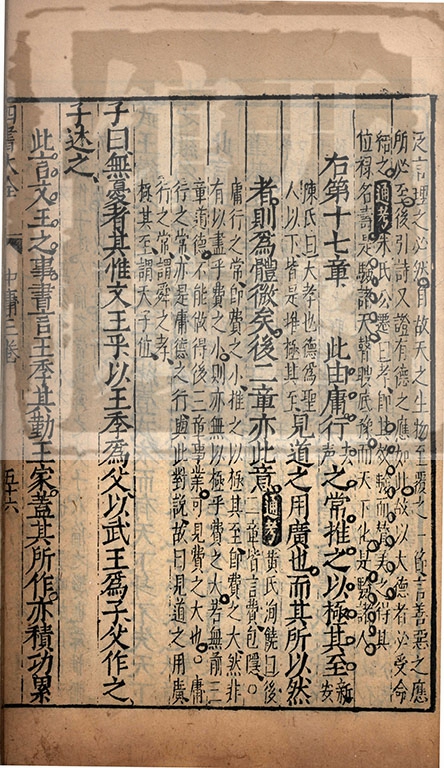 泛言理之必然自故天之生物至覆之一節言善惡之應
所必至後引詩又證有德之應如此故以大德者必受命
結之通考朱氏公遷曰孝即 效驗而贊美之得其
位祿名壽是驗諸天瞽瞍底豫而天下化是驗諸人
右第十七章 此由庸行去聲之常推之以極其至新安
陳氏曰大孝也德爲聖人以下皆是推極其至見道之用廣也而其所以然
者則爲體微矣後二章亦此意通考黃氏洵饒曰後二章皆言費包隱。
庸行之常即費之小推之以極其至即費之大然非
有以盡乎費之小則亦無以極乎費之大若無前三
章道德不能做得後二章事業可見費之大也。庸
行之常亦是庸德之行與此對說故曰見道之用廣
行之常謂舜之孝
極其至謂天子位
子曰無憂者其惟文王乎以王季爲父以武王爲子父作之
子述之
此言文王之事書言王季其勤王家蓋其所作亦積功累
四書大全 中庸二卷 五十六